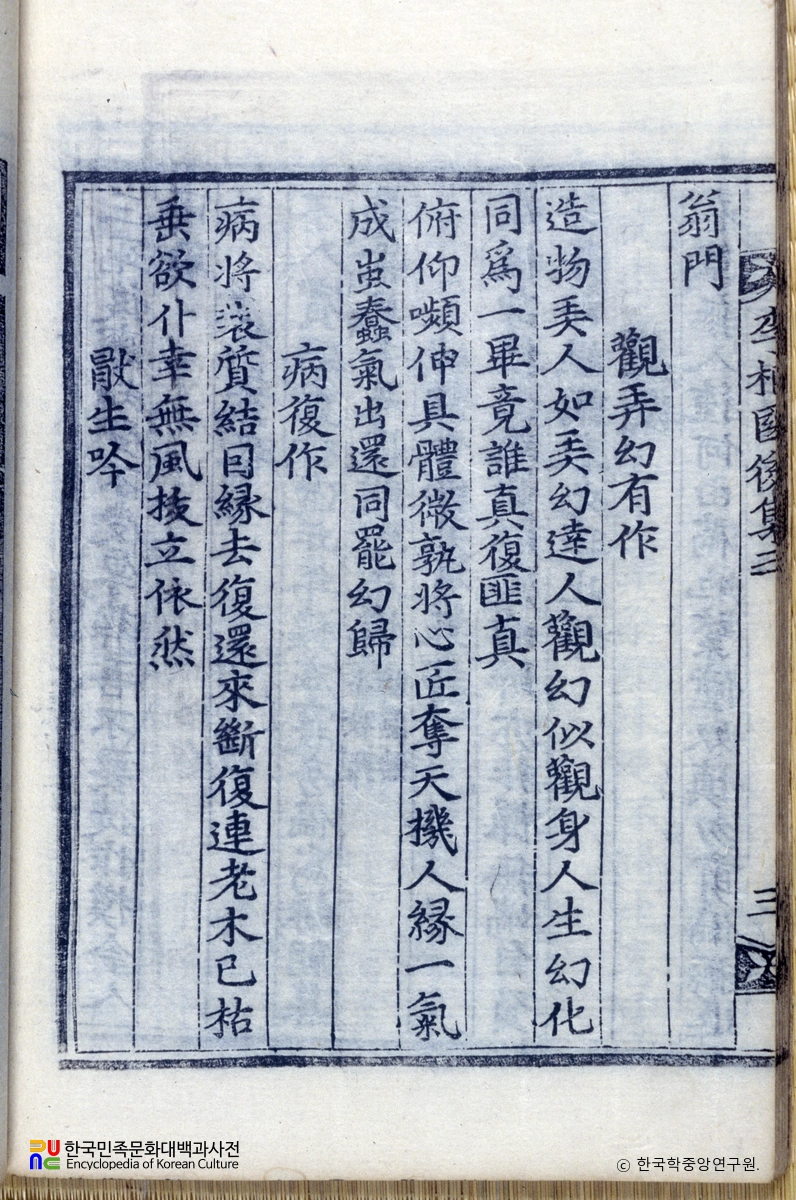 李相國後集三
三
翁門
觀弄幻有作
造物弄人如弄幻達人觀幻似觀身人生幻化
同爲一畢竟誰真復匪真
俯仰嚬伸具體微孰將心匠奪天機人緣一氣
成蚩蠢氣出還同罷幻歸
病復作
病將衰質結因緣去復還來斷復連老木已枯
垂欲仆幸無風拔立依然
猒生吟
한국민족문화대백과사전
Encyclopedia of Korean Culture
© 한국학중앙연구원.